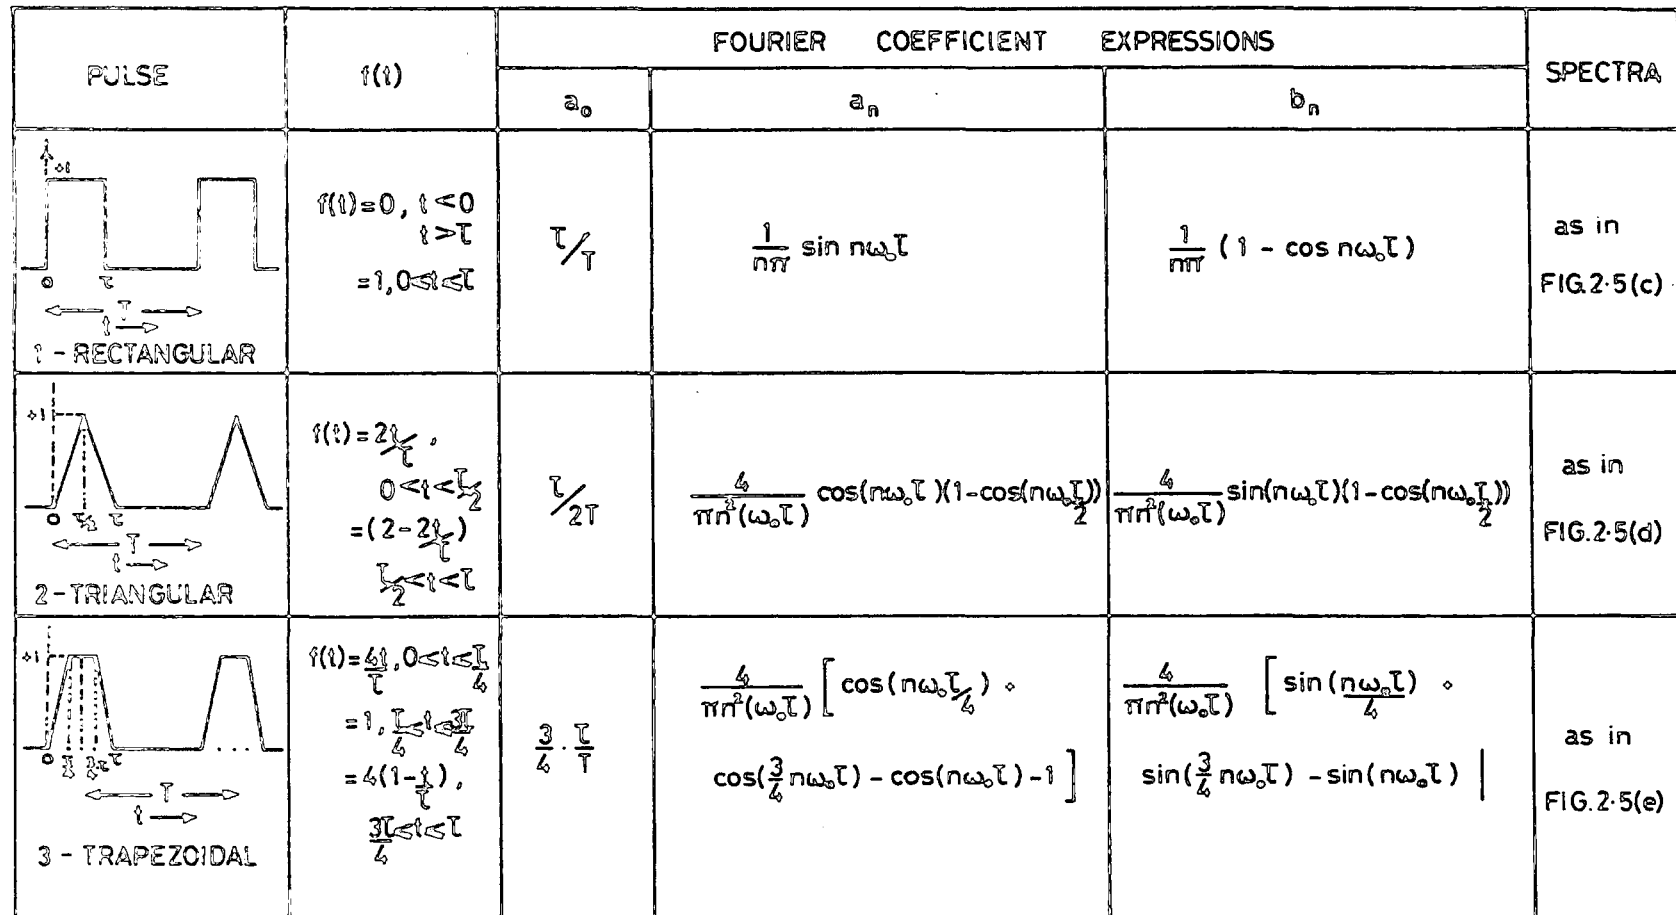 FOURIER COEFFICIENT EXPRESSIONS
PULSE f(t) SPECTRA
a₀ aₙ bₙ
+1
0 τ
T
t
1 - RECTANGULAR
f(t)=0, t<0
t>τ
=1, 0≤t≤τ
τ/T
1/nπ sin nω₀τ
1/nπ (1 - cos nω₀τ)
as in
FIG.2·5(c)
+1
0 τ/2 τ
T
t
2-TRIANGULAR
f(t)=2t/τ,
0<t<τ/2
=(2-2t/τ)
τ/2<t<τ
τ/2T
4/πn²(ω₀τ) cos(nω₀τ)(1-cos(nω₀τ/2))
4/πn²(ω₀τ) sin(nω₀τ)(1-cos(nω₀τ/2))
as in
FIG.2·5(d)
+1
0 τ/4 3/4τ τ
T
t
3 - TRAPEZOIDAL
f(t)=4t/τ, 0≤t≤τ/4
=1, τ/4≤t≤3τ/4
=4(1-t/τ),
3τ/4≤t≤τ
3/4 · τ/T
4/πn²(ω₀τ) [cos(nω₀τ/4) +
cos(3/4 nω₀τ) - cos(nω₀τ) - 1]
4/πn²(ω₀τ) [sin(nω₀τ/4) +
sin(3/4 nω₀τ) - sin(nω₀τ)]
as in
FIG.2·5(e)